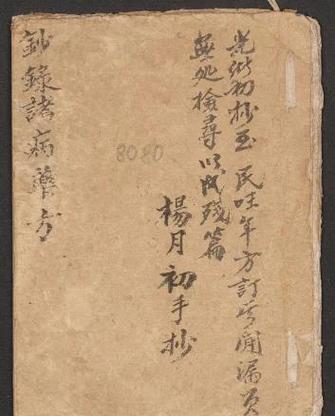 光緒初抄至 民 年方訂 漏頁
無处檢尋以成殘篇
楊月初手抄
8080
鈔錄諸病藥方